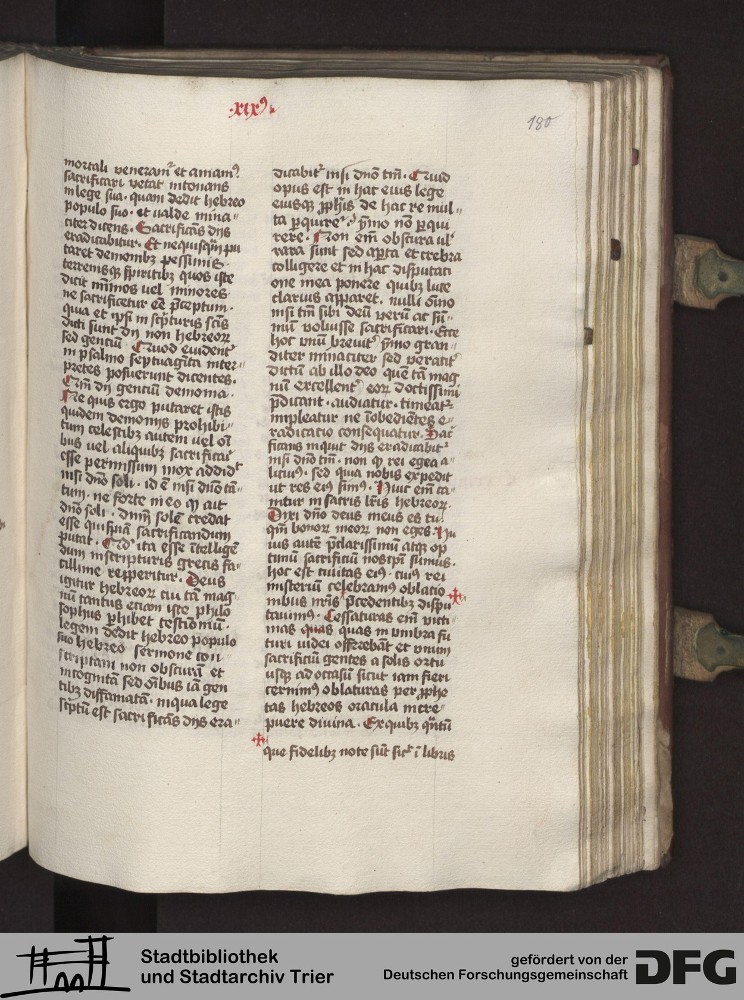 ·xix9·
180
mortali veneram᷑ et amam9.
sacrificari vetat intonans
in lege sua. quam dedit hebreo
populo suo. et valde mina=
citer dicens. Sacrificãs dijs
eradicabitur. Et ne quisq̃m pu
taret demonibꝫ pessimis
terrenisqꝫ sp̃ritibꝫ quos iste
dicit mĩmos vel minores
ne sacrificetur eẽ p̃ceptum.
quia et ip̃i in sc̃pturis scĩs
dicti sunt dij non hebreoꝝ
sed gencium. Quod evident᷑
in psalmo septuagĩta inter=
pretes posuerunt dicentes.
Qm̃ dij genciũ demonia.
Ne quis ergo putaret istis
quidem demonijs prohibi=
tum celestibꝫ autem vel oĩ
bus vel aliquibꝫ sacrificari
esse permissum mox addid᷑
nisi dño soli. id ẽ nisi dño tã=
tum. ne forte in eo qꝫ ait
dño soli. dnm̃ solẽ credat
esse quispiã sacrificandum
putat. Qd̃ ita esse ĩtelligẽ
dum in scripturis grecis fa=
cillime repperitur. Deus
igitur hebreoꝝ cui tã mag=
nũ tantus etiam iste philo
sophus ꝑhibet testimoniũ.
legem dedit hebreo populo
suo hebreo sermone con
scriptam non obscurã et
incognitã sed oĩbus iã gen
tibꝫ diffamatã. in qua lege
sc̃ptũ est sacrificãs dijs era=
dicabit᷑ nisi dño tm̃. Quid
opus est in hac eius lege
eiusqꝫ ꝓphĩs de hac re mul=
ta ꝑquirere. ymo nõ ꝑqui
rere. Non eñ obscura vl᷑
rara sunt sed aꝑta et crebra
colligere et in hac disputati
one mea ponere quibꝫ luce
clarius apparet. nulli oĩno
nisi tm̃ sibi deũ verũ ac sũ=
mũ voluisse sacrificari. Ecce
hoc vnũ breuit᷑ ymo gran=
diter minaciter sed veracit᷑
dictũ ab illo deo quẽ tã mag
nũ excellent᷑ eoꝝ doctissimi
p̃dicant. audiatur. timeat᷑.
impleatur ne ĩobedientes e=
radicatio consequatur. Sac᷑
ficans inquit dijs eradicabit᷑
nisi dño tm̃. non qꝫ rei egea a=
licui9. sed quia nobis expedit
ut res ei9 sim9. Huic eñ ca=
nitur in sacris lr̃is hebreoꝝ.
Dixi dño deus meus es tu.
qm̃ bonoꝝ meoꝝ non eges. Hu
ius autẽ p̃clarissimũ atqꝫ op
timũ sacrificiũ nos ip̃i sumus.
hoc est ciuitas ei9. cui9 rei
misteriũ celebram9 oblatio
nibus nr̃is p̃cedentibꝫ dispu
tauim9. Cessaturas eñ victi
mas quas quas in vmbra fu
turi iudei offerebãt et vnum
sacrificiũ gentes a solis ortu
usqꝫ ad occasũ sicut iam fieri
cernim9 oblaturas per ꝓphe
tas hebreos oracula incre=
puere diuina. Ex quibꝫ q̃ntũ
que fidelibꝫ note sũt sic᷑ ĩ libris
Stadtbibliothek
und Stadtarchiv Trier
gefördert von der
Deutschen Forschungsgemeinschaft
DFG